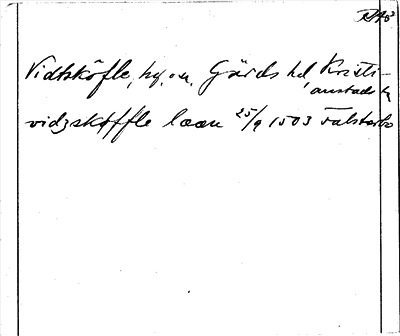 RA8
Vidtsköfle, hg. o. sn. Gärds hd, Kristi-
anstads l.
vidzskøffle læen 25/9 1503 Falsterbo